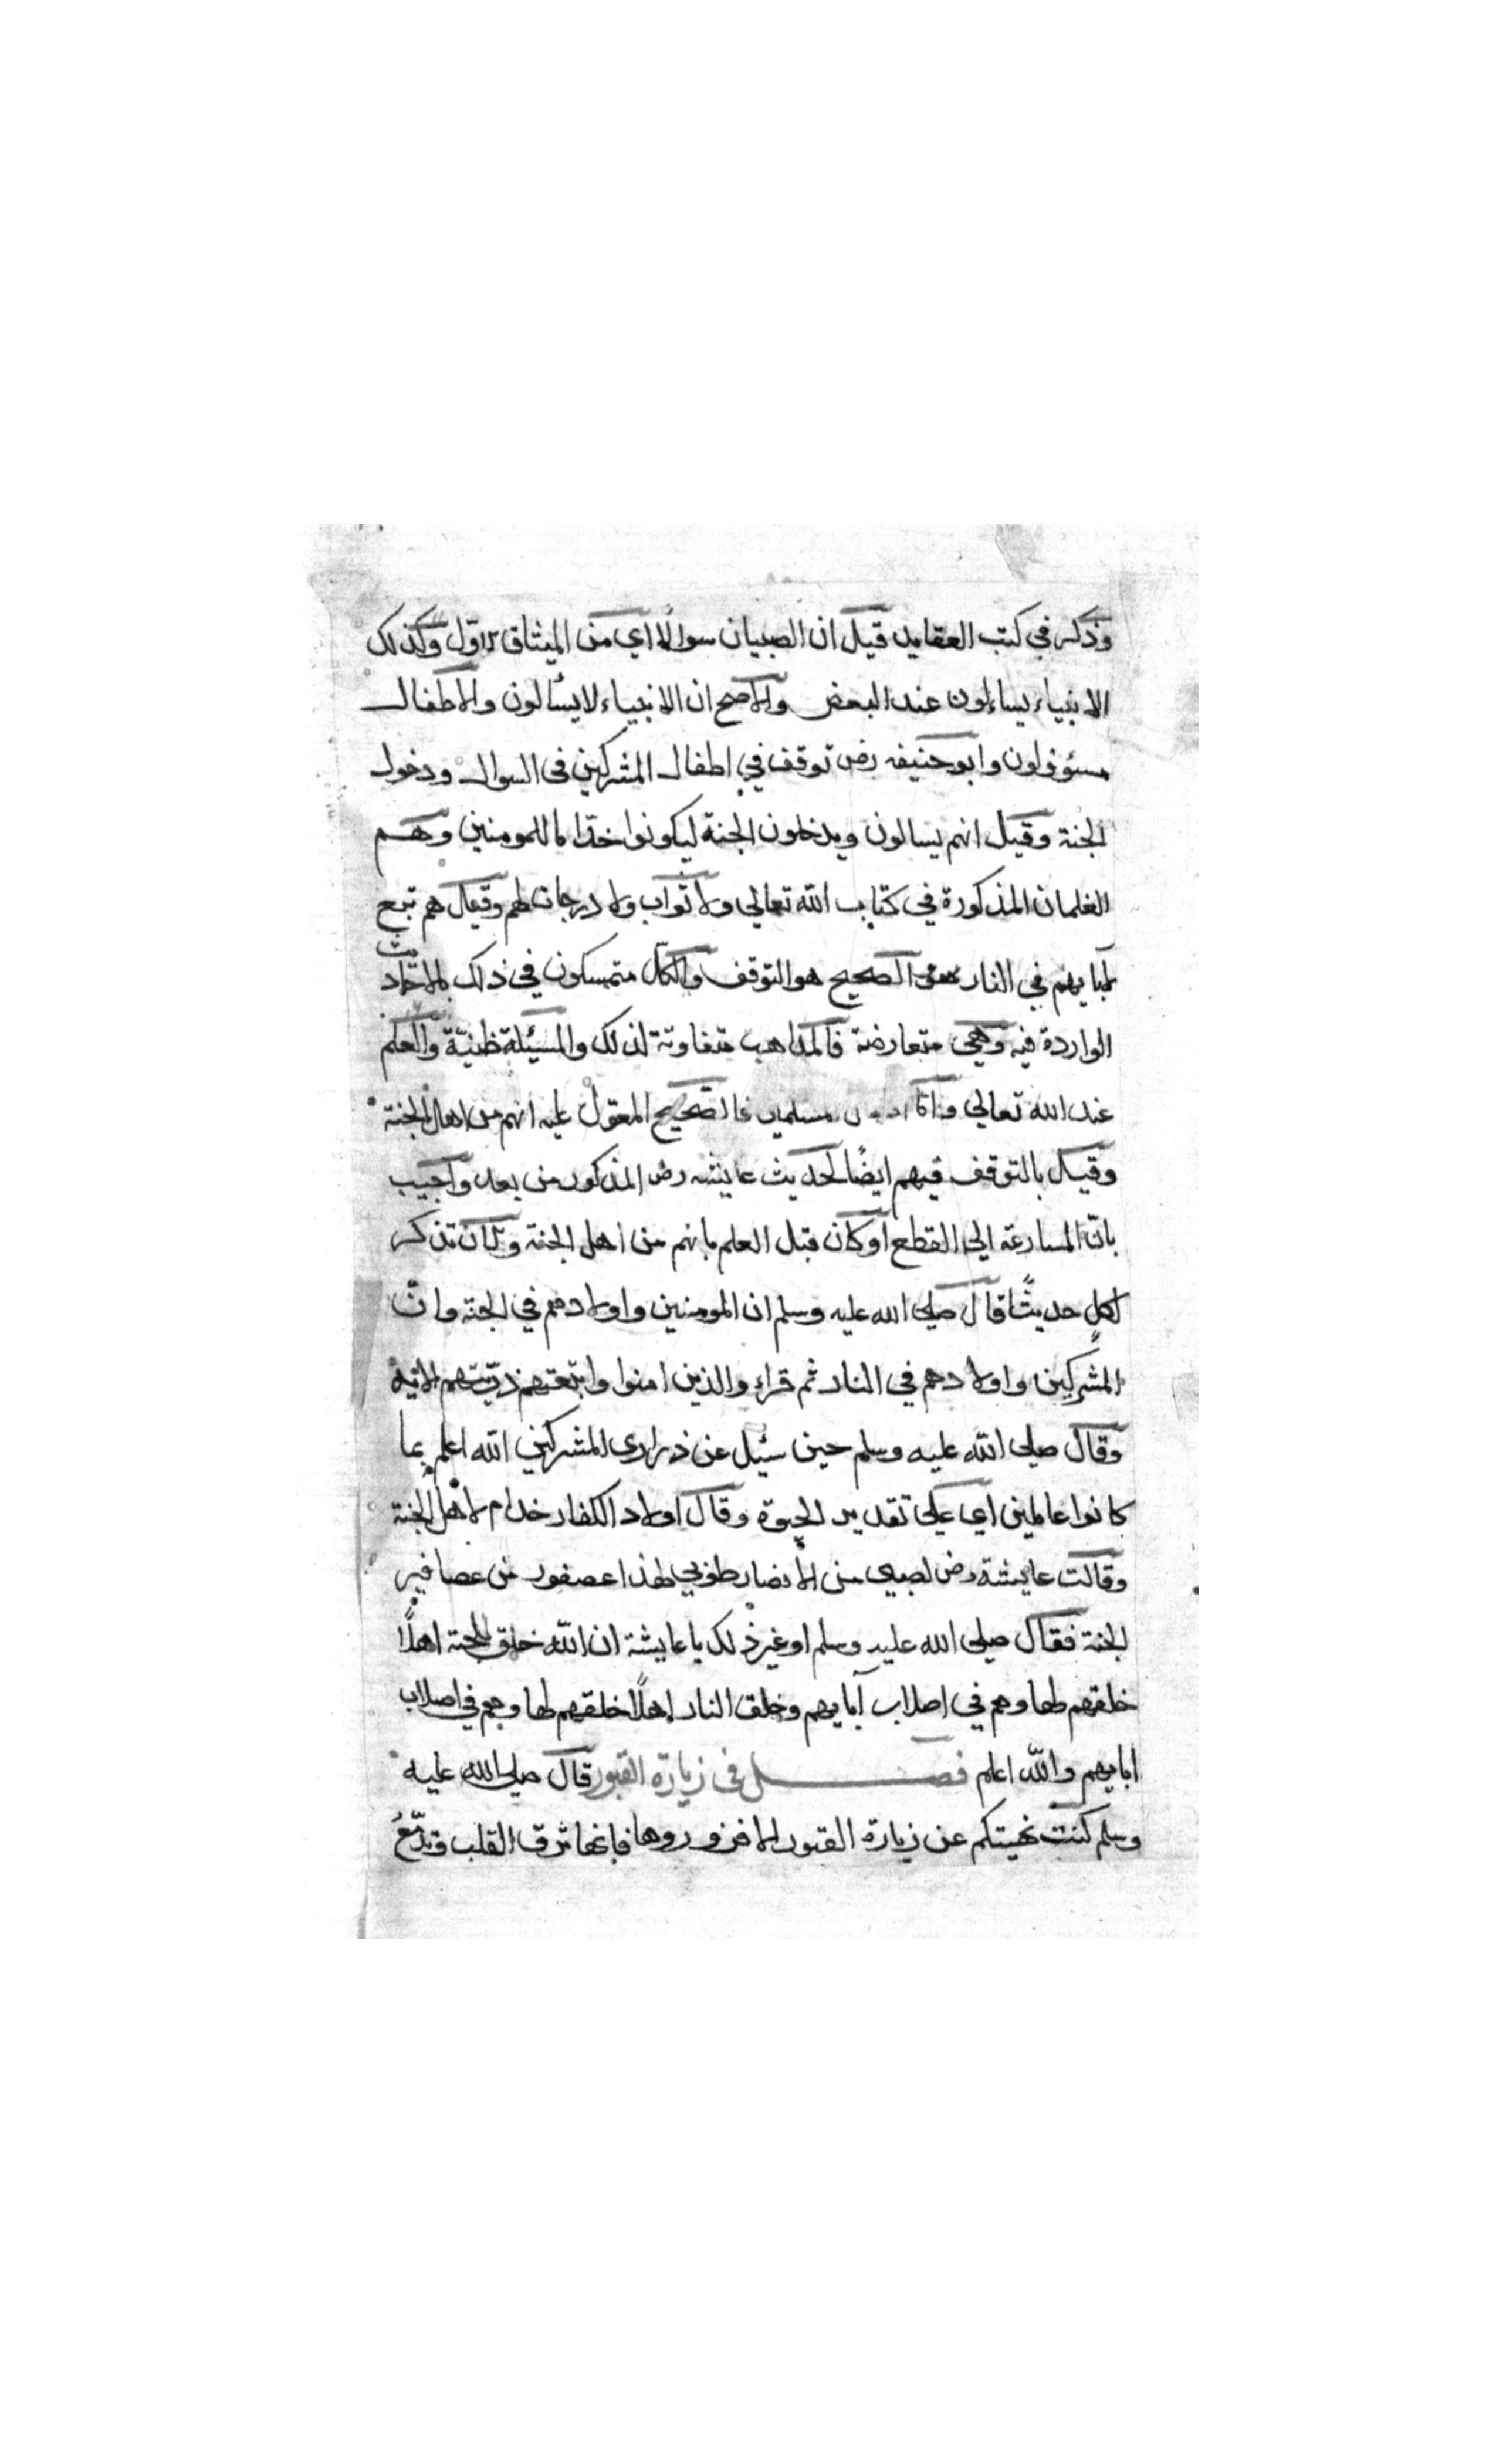 وذكر في كتب العقايد قيل ان الصبيان سوالا اي من الميثاق الاول وكذلك
الانبياء يساءلون عند البعض والاصح ان الانبياء لا يسألون والاطفال
مسؤولون وابو حنيفه رض توقف في اطفال المشركين في السوال ودخول
الجنة وقيل انهم يسالون ويدخلون الجنة ليكونوا خدّاما للمومنين وهم
الغلمان المذكورة في كتاب الله تعالى ولا ثواب ولا درجات لهم وقيل هم تبع
لابايهم في النار الصحيح هو التوقف والكل متمسكون في ذلك بالاحاديث
الواردة فيه وهي متعارضة فالمذاهب متفاوتة لذلك والمسئيلة ظنيّة والعلم
عند الله تعالى واما مسلمين فالصّحيح المعوّل عليه انهم من اهل الجنة
وقيل بالتوقف فيهم ايضًا لحديث عايشه رض المذكور من بعد واجيب
بانّ المسارعة الى القطع او كان قبل العلم بانهم من اهل الجنة وكان تذكر
لكلٍ حديثًا قال صلى الله عليه وسلم ان المومنين واولادهم في الجنة وانّ
المشركين واولادهم في النار ثم قراء والذين امنوا واتبعتهم ذريّتهم الاية
وقال صلى الله عليه وسلم حين سئيل عن ذراري المشركين الله اعلم بما
كانوا عاملين اي على تقدير الحيوة وقال اولاد الكفار خدام لاهل الجنة
وقالت عايشة رض لصبي من الانصار طوبي لهذا عصفور من عصافير
الجنة فقال صلى الله عليه وسلم او غير ذلك يا عايشة ان الله خلق للجنة اهلًا
خلقهم لها وهم في اصلاب آبايهم وخلق النار اهلًا خلقهم لها وهم في اصلاب
ابايهم والله اعلم فصل في زيارة القبور قال صلى الله عليه
وسلم كنت نهيتكم عن زيارة القبور الا فزوروها فانها ترق القلب وتدمّعُ